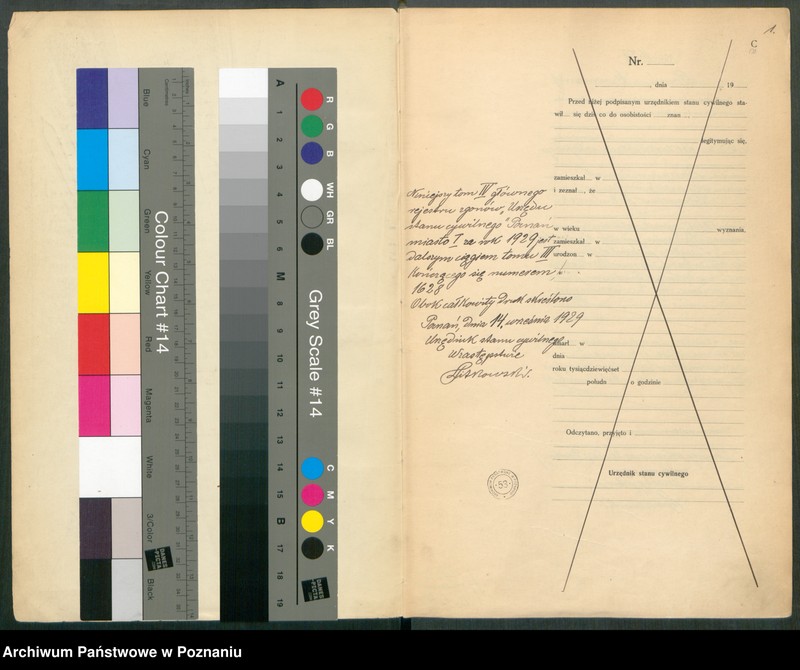 Blue
Cyan
Green
Yellow
Red
Magenta
White
3/Color
Black
Colour Chart #14
Grey Scale #14
A
1
2
3
4
5
6
M
8
9
10
11
12
13
14
15
B
17
18
19
R
G
B
WH
GR
BL
C
M
Y
K
DANES
PICTA
1.
C
Nr.
, dnia 19
Przed niżej podpisanym urzędnikiem stanu cywilnego sta-
wił się dziś co do osobistości znan
legitymując się,
zamieszkał w
i zeznał , że
w wieku wyznania,
zamieszkał w
urodzon w
zmarł w
dnia
roku tysiącdziewięćset
połudn o godzinie
Odczytano, przyjęto i
Urzędnik stanu cywilnego
Niniejszy tom IV głównego
rejestru zgonów "Urzędu
stanu cywilnego" Poznań
miasto I za rok 1929 jest
dalszym ciągiem tomu III
kończącego się numerem
1628
Obok całkowity druk skreślono
Poznań, dnia 14. września 1929
Urzędnik stanu cywilnego
W zastępstwie
53
Archiwum Państwowe w Poznaniu